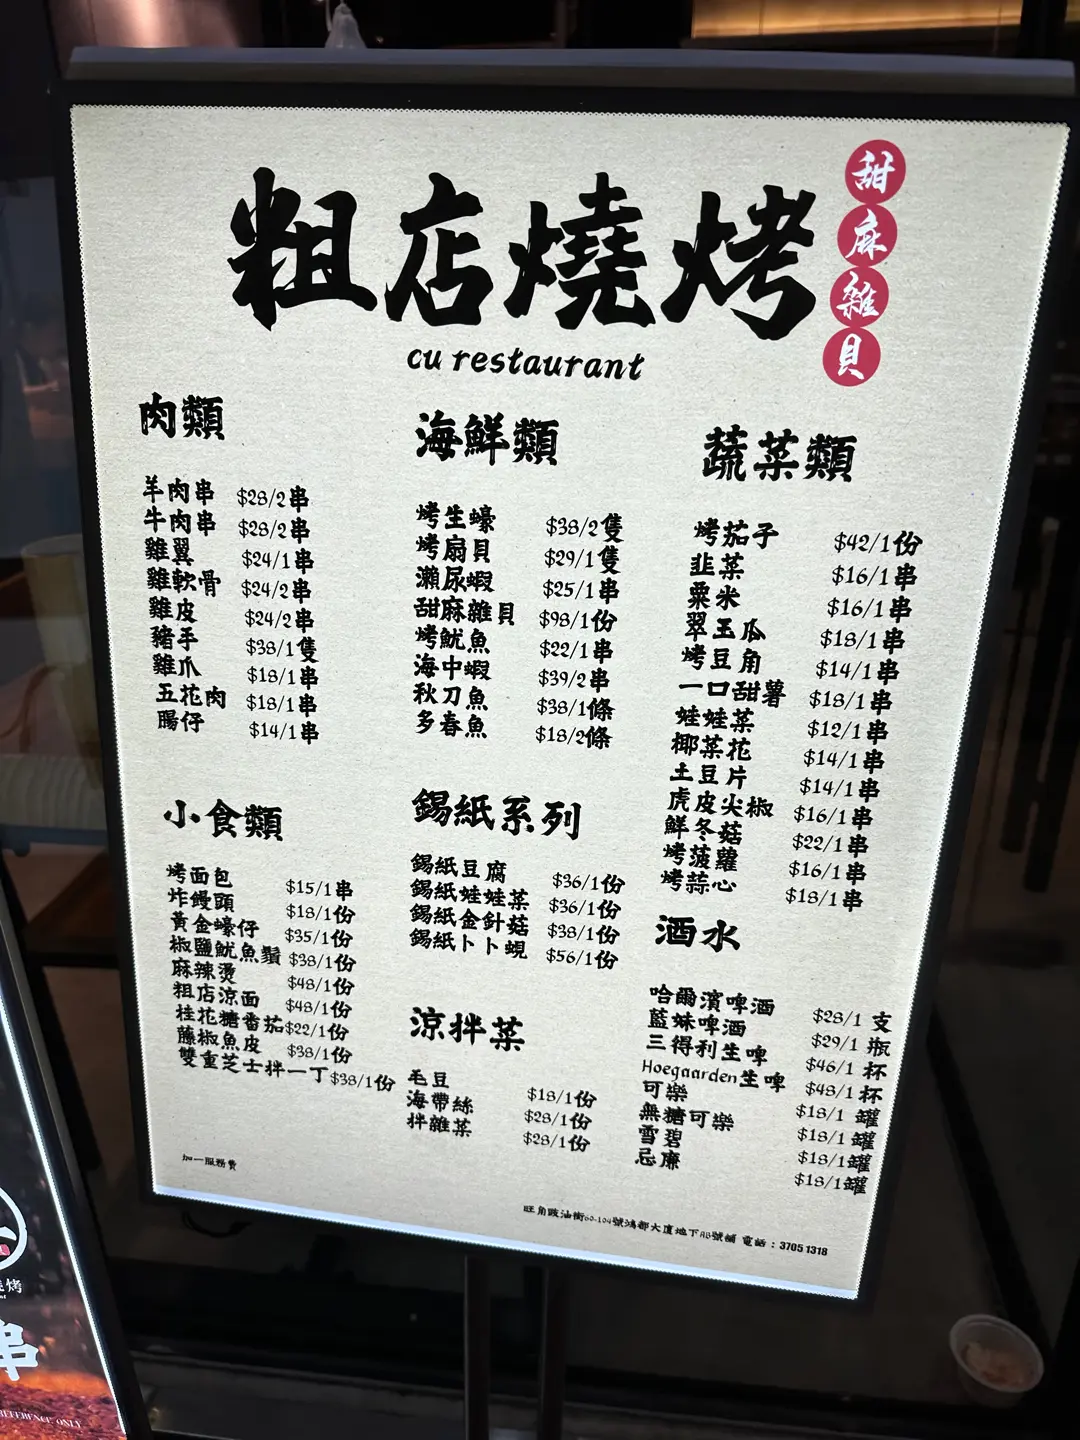 粗店燒烤
甜麻雜貝
cu restaurant
肉類
羊肉串 $28/2串
牛肉串 $28/2串
雞翼 $24/1串
雞軟骨 $24/2串
雞皮 $24/2串
豬手 $38/1隻
雞爪 $18/1串
五花肉 $18/1串
腸仔 $14/1串
海鮮類
烤生蠔 $38/2隻
烤扇貝 $29/1隻
瀨尿蝦 $25/1串
甜麻雜貝 $98/1份
烤魷魚 $22/1串
海中蝦 $39/2串
秋刀魚 $38/1條
多春魚 $18/2條
蔬菜類
烤茄子 $42/1份
韭菜 $16/1串
粟米 $16/1串
翠玉瓜 $18/1串
烤豆角 $14/1串
一口甜薯 $18/1串
娃娃菜 $12/1串
椰菜花 $14/1串
土豆片 $14/1串
虎皮尖椒 $16/1串
鮮冬菇 $22/1串
烤菠蘿 $16/1串
烤蒜心 $18/1串
小食類
烤面包 $15/1串
炸饅頭 $18/1份
黃金蠔仔 $35/1份
椒鹽魷魚鬚 $38/1份
麻辣燙 $48/1份
粗店涼面 $48/1份
桂花糖番茄 $22/1份
藤椒魚皮 $38/1份
雙重芝士拌一丁 $38/1份
錫紙系列
錫紙豆腐 $36/1份
錫紙娃娃菜 $36/1份
錫紙金針菇 $38/1份
錫紙卜卜蜆 $56/1份
涼拌菜
毛豆 $18/1份
海帶絲 $28/1份
拌雜菜 $28/1份
酒水
哈爾濱啤酒 $28/1 支
藍妹啤酒 $29/1 瓶
三得利生啤 $46/1 杯
Hoegaarden生啤 $48/1 杯
可樂 $18/1 罐
無糖可樂 $18/1 罐
雪碧 $18/1罐
忌廉 $18/1罐
加一服務費
旺角豉油街60-104號鴻都大廈地下AB號舖 電話：3705 1318
燒烤
串
REFERENCE ONLY